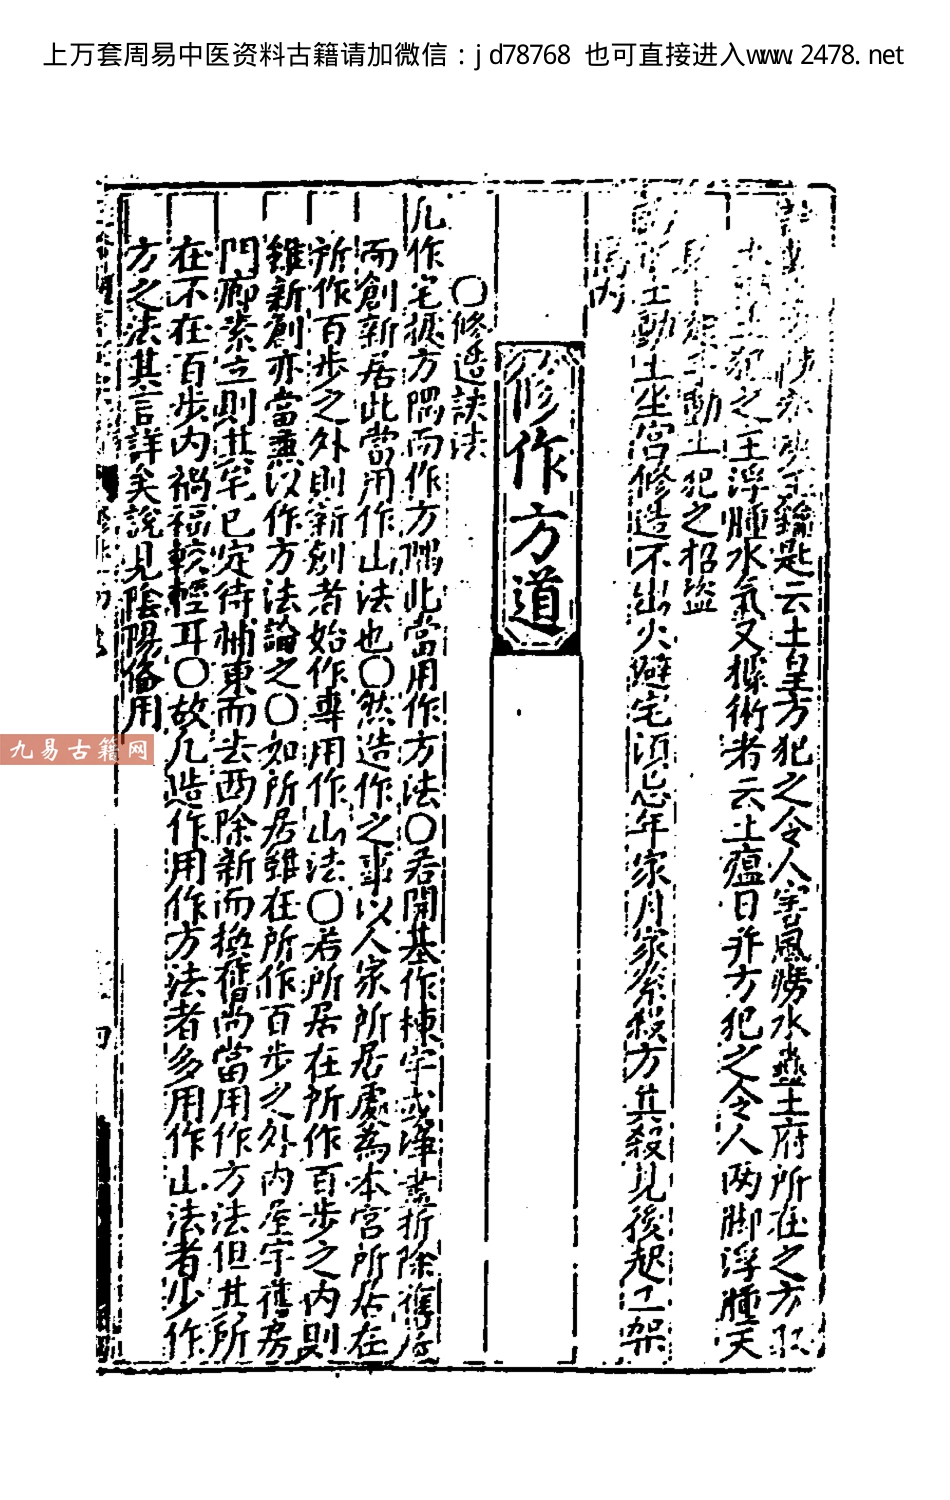 上万套周易中医资料古籍请加微信：jd78768 也可直接进入www.2478.net
鑰匙云土皇方犯之令人害風癆水蠱土府所在之方
犯之主浮腫水氣又據術者云土瘟日并方犯之令人两脚浮腫天
動土犯之招盜
動土坐宮修造不出火避宅須忌年家月家殺方其殺見後起工架
馬内
修作方道
〇修造訣法
凡作宅拠方隅而作方隅此當用作方法〇若開基作棟宇或澤業折除舊屋
而創新居此當用作山法也〇然造作之事以人家所居處為本宮所居在
所作百步之外則新創者始作專用作山法〇若所居在所作百步之内則
雖新創亦當兼以作方法論之〇如所居雖在所作百步之外内屋宇舊房
門廊素立則其宅已定待補東而去西除新而換舊尚當用作方法但其所
在不在百步内禍福較輕耳〇故凡造作用作方法者多用作山法者少作
方之法其言詳矣說見陰陽俻用
九易古籍网